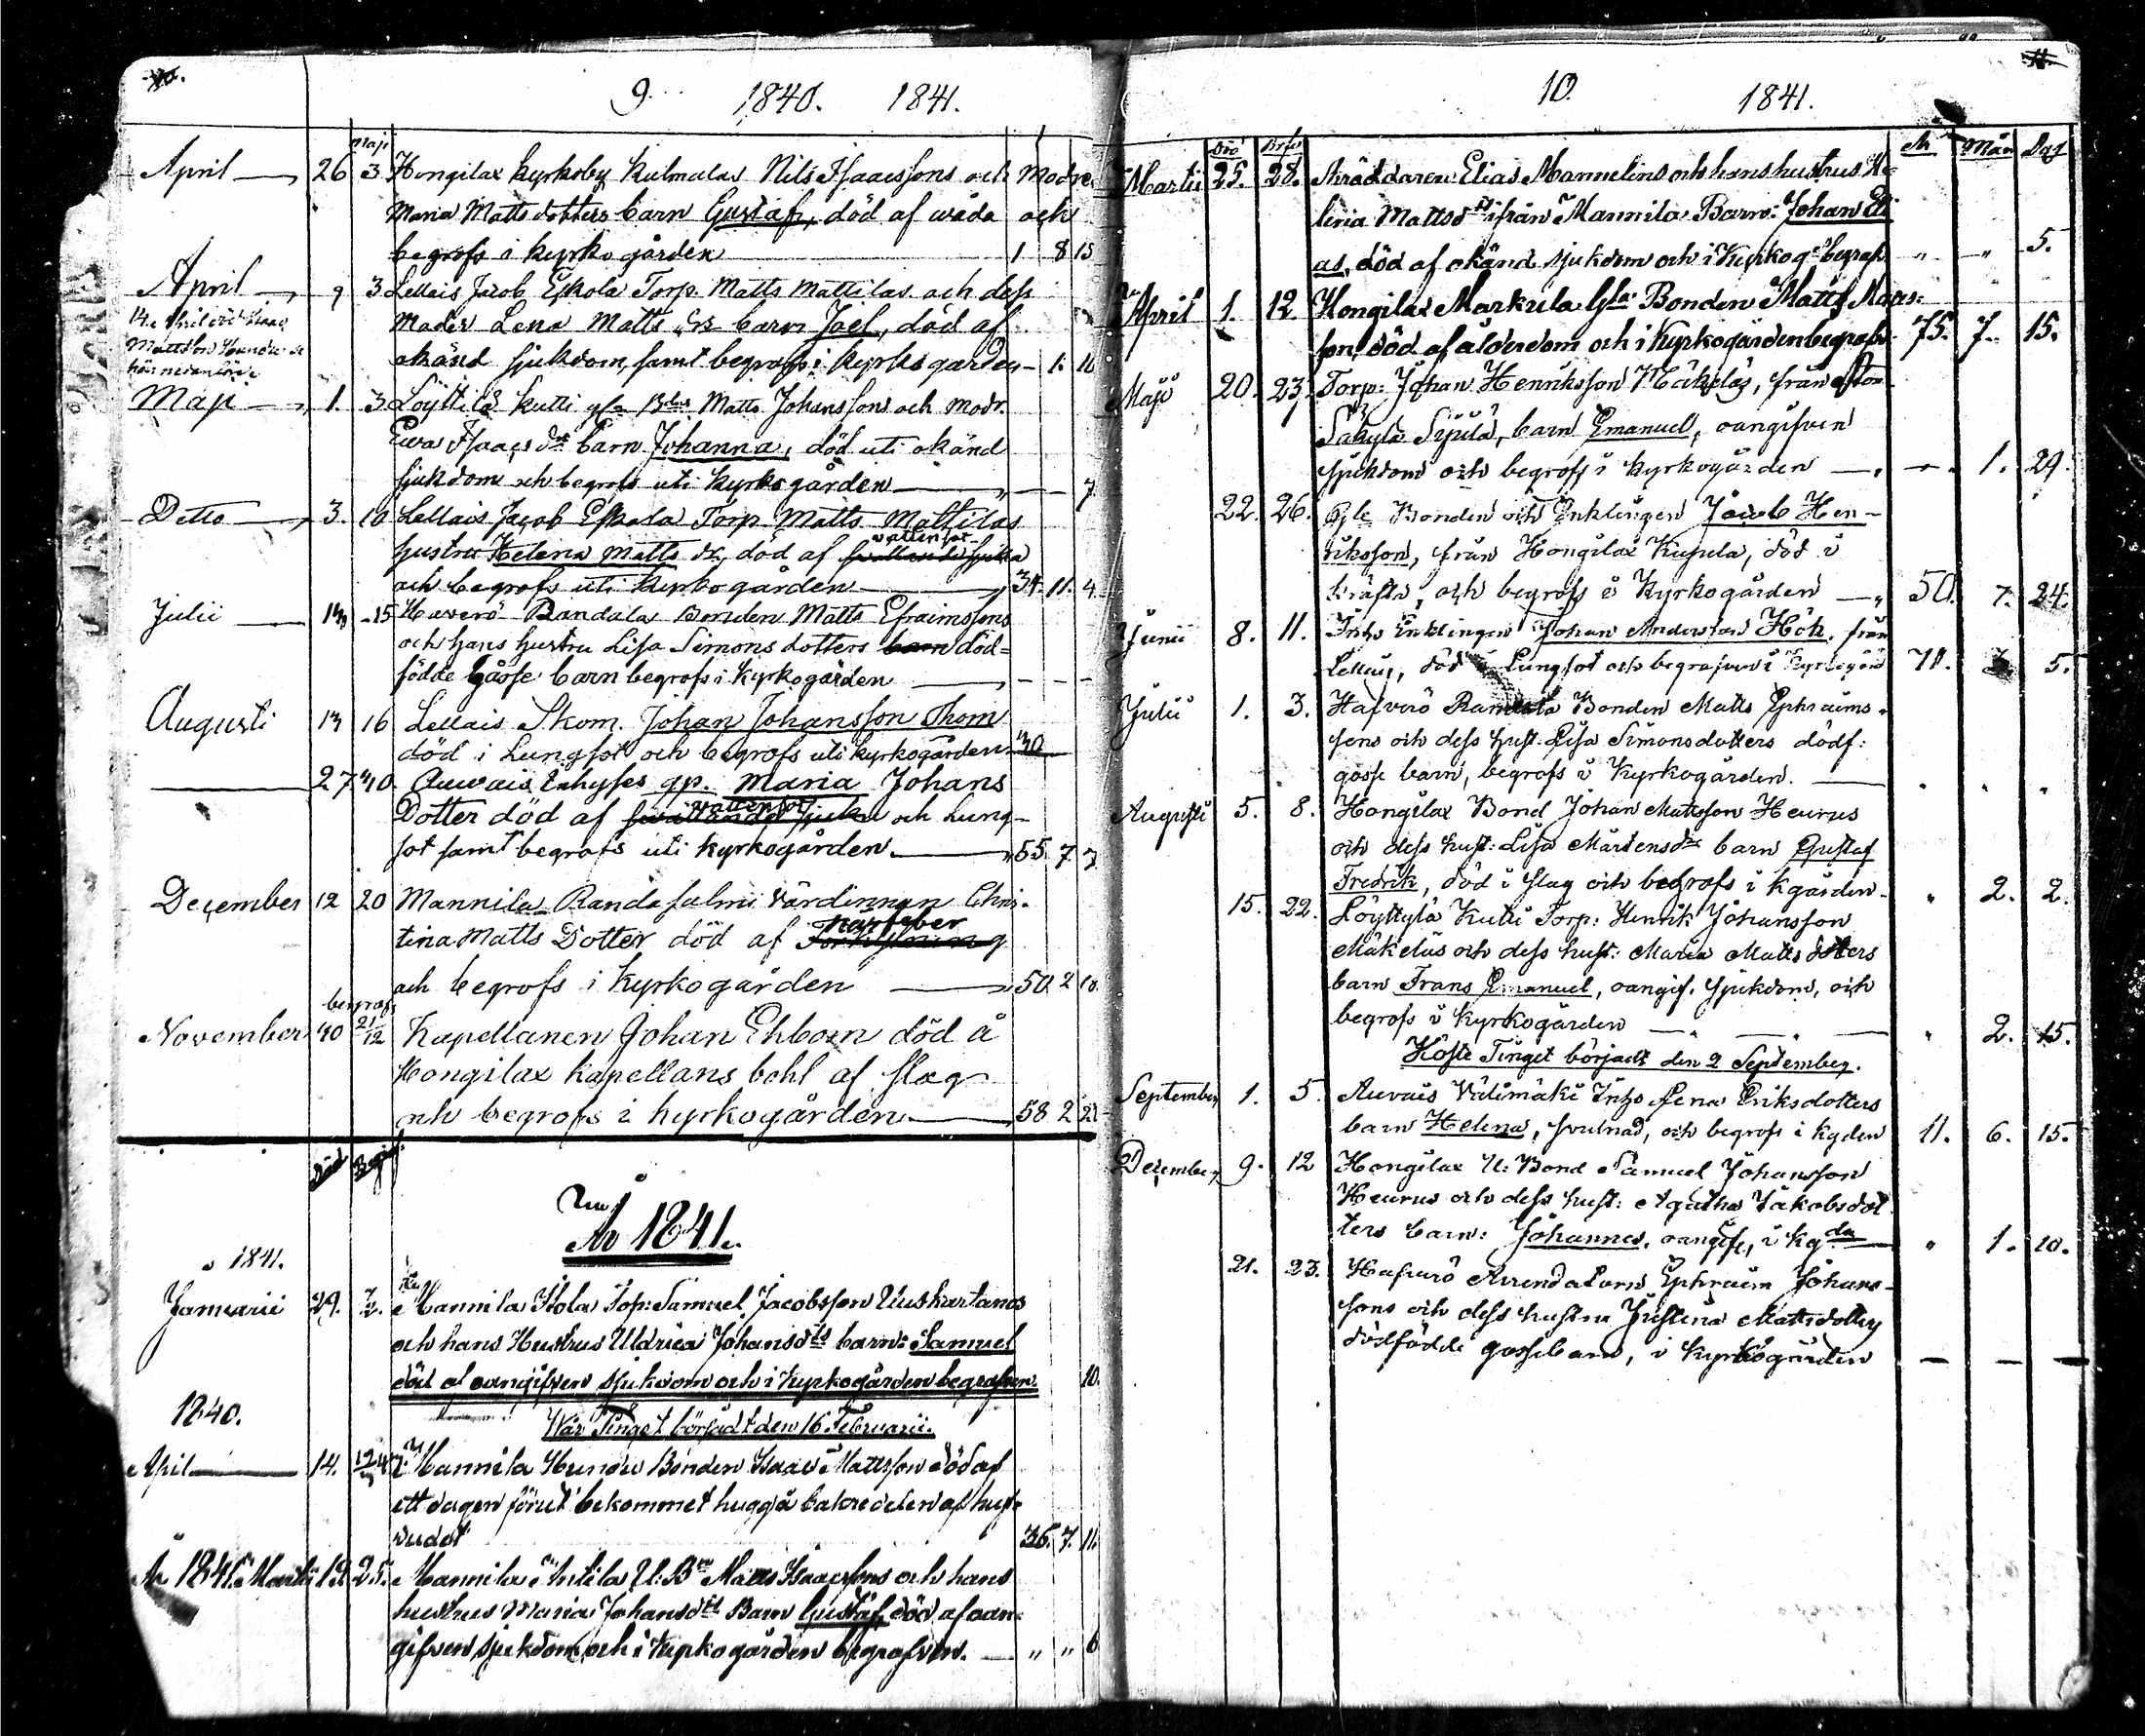 9. 1840. 1841.
Maji
April 26 3 Hongilax Kyrkoby Kulmalas Nils Isaacssons och Modr.
Maria Matts dotters barn Gustaf, död af våda och
begrofs i kyrkogården 1 8 15
April 9 3 Lellais Jacob Eskola Torp. Matts Mattilas och dess
14. April död Isaac
Moder Lena Matts drs barn Joel, död af
Mattsson Hunou se
okänd sjukdom, samt begrofs i kyrkogården 1. 16
här nedanföre
Maji 1. 3 Löyttilä Kutti gla Bds Matts Johanssons och modr.
Ewa Isaacs dr barn Johanna, död uti okänd
sjukdom och begrofs uti Kyrkogården 7
Detto 3. 10 Lellais Jacob Eskola Torp. Matts Mattilas
vattensot
hustru Helena Matts dr, död af
och begrofs uti kyrkogården 34. 11. 4
Julii 15 Haverö Randala Bonden Matts Efraimssons
och hans hustru Lisa Simons dotters barn död=
födde gåsse barn begrofs i kyrkogården
Augusti 13 16 Lellais Skom. Johan Johansson Thom
död i Lungsot och begrofs uti kyrkogården 30
27 30. Auvais Inhyses qp. Maria Johans
vattensot
Dotter död af och Lung-
sot samt begrofs uti kyrkogården 55 7 7
December 12 20 Mannila Randasalmi värdinnan Chris-
närfeber
tina Matts Dotter död af
och begrofs i kyrkogården 50 2 10
begrofs
November 30 21/12 Kapellanen Johan Ehbom död å
Hongilax Kapellans bohl af slag
och begrofs i kyrkogården 58 2 22
Död Begrof.
År 1841.
1841.
Januarii 29. 7/2. Mannila Stola Top: Samuel Jacobsson Uuskartanos
och hans Hustrus Uldrica Johansdts barn: Samuel
död af oangifven sjukdom och i kyrkogården begrafven. 10.
Vår Tinget börjadt den 16. Februarii.
1840.
April 14. Mannila Hunou Bonden Isaac Mattsson död af
ett dagen förut bekommet hugg å bakre delen af huf-
vudet 36. 7. 11.
År 1841. Martii 19. 25. Mannila Anttila U: Bn Matts Isaacssons och hans
hustrus Maria Johansdts Barn Gustaf, död af oan-
gifven sjukdom och i kyrkogården begrafven. " " 6
10. 1841.
Död Begr År Mån Dag
Martii 25. 28. Skräddaren Elias Mannelins och hans hustrus He-
lena Mattsdrs ifrån Mannila Barn: Johan Eli
as, död af okänd sjukdom och i Kyrkog. begraf. " " 5.
April 1. 12 Hongilax Markula Gla: Bonden Matts Mats-
son, död af ålderdom och i Kyrkogården begrafv. 75. 7. 15.
Maji 20. 23. Torp: Johan Henriksson Mäkeläs, från
Säkylä Sipilä, barn Emanuel, oangifven
sjukdom och begrofs i kyrkogården 1. 29.
22. 26. Gle Bonden och Enklingen Jacob Hen-
riksson, från Hongilax Kupila, död i
kräfta, och begrofs å Kyrkogården 50. 7. 24.
Junii 8. 11. Inhs Enklingen Johan Andersson Hök, från
Lellais, död i Lungsot och begrafven i Kyrkogår 71. 5.
Julii 1. 3. Hafverö Randala Bonden Matts Ephraims-
sons och dess hust: Lisa Simonsdotters dödf:
gosse barn, begrofs å Kyrkogården.
Augusti 5. 8. Hongilax Bond Johan Mattsson Heurus
och dess hust: Lisa Mårtensdrs barn Gustaf
Fredrik, död i slag och begrofs i kgården " 2. 2.
15. 22. Löyttylä Kutti Torp: Henrik Johansson
Mäkeläs och dess hust: Maria Matts dotters
barn Frans Emanuel, oangif. sjukdom, och
begrofs å kyrkogården " 2. 15.
Höste Tinget börjadt den 2 September.
September 1. 5. Auvais Välimäki Inhs Lena Eriksdotters
barn Helena, svulnad, och begrofs i kgden 11. 6. 15.
December 9. 12 Hongilax U: Bond Samuel Johansson
Heurus och dess hust: Agatha Jakobsdot
ters barn: Johannes, oangif, i kgden " 1. 10.
21. 23. Hafverö Arrendatorns Ephraim Johans-
sons och dess hustru Justina Mattsdotters
dödfödde gossebarn, i kyrkogården